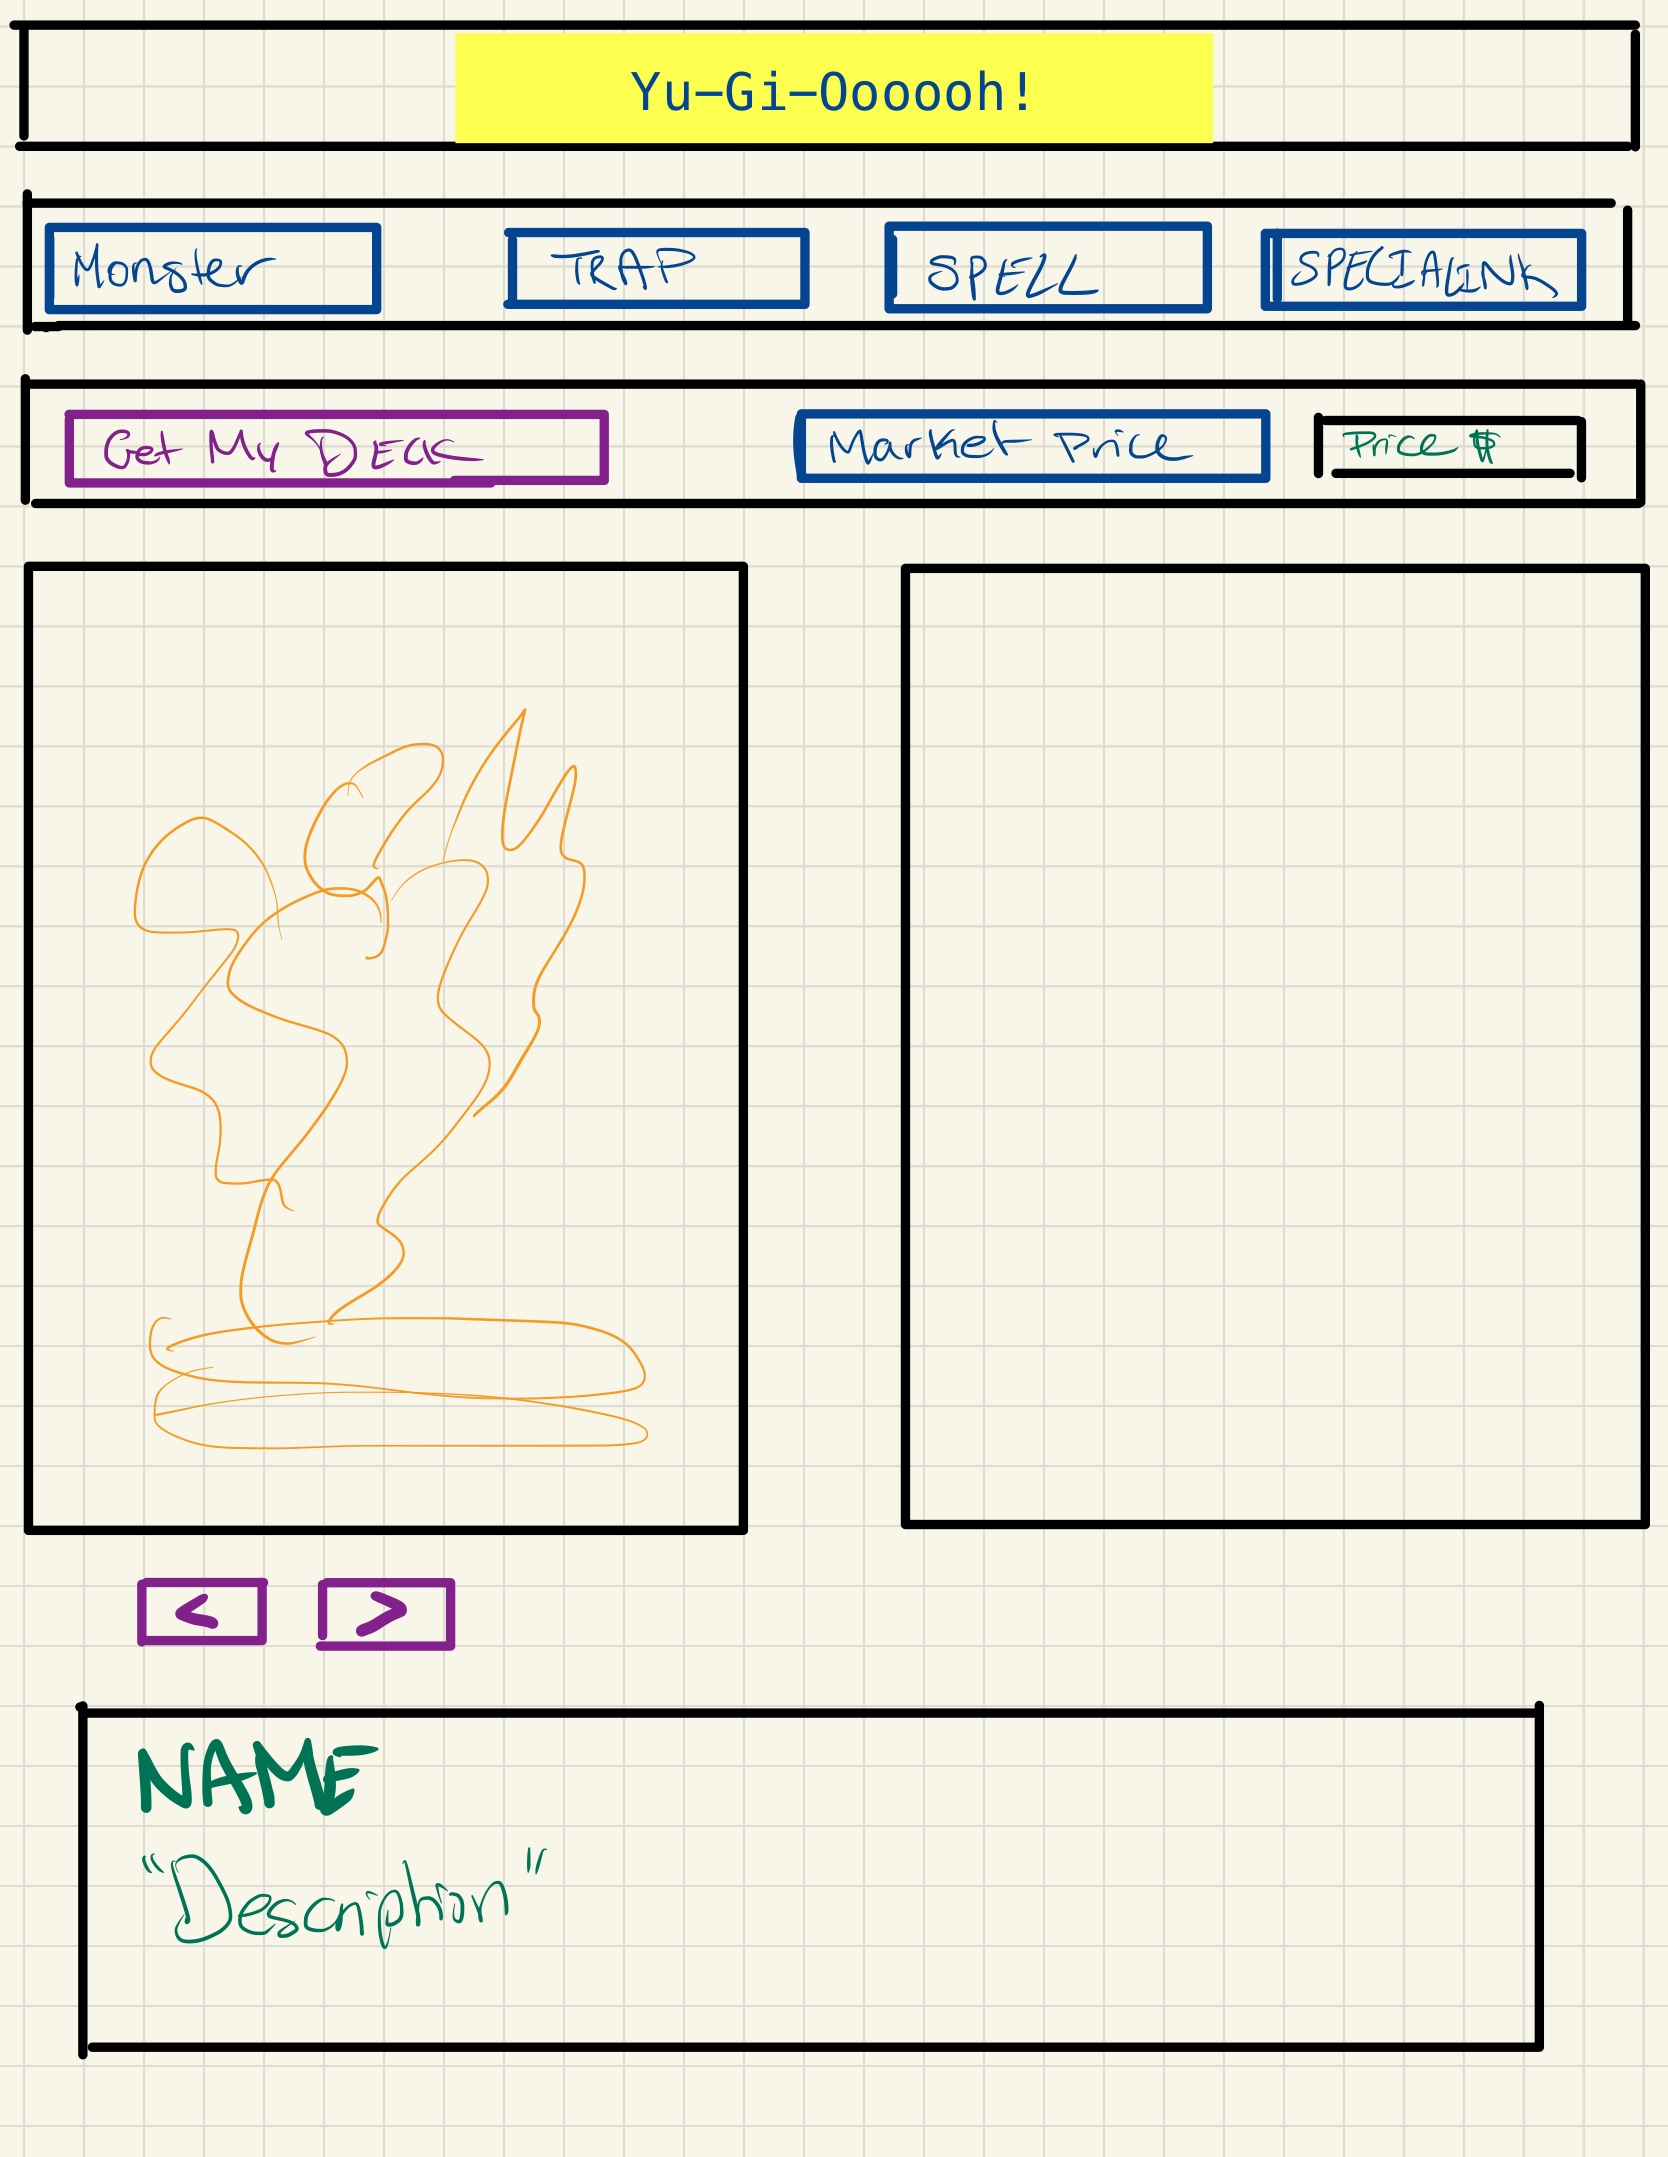 Yu-Gi-Oooooh!
Monster TRAP SPELL SPECIALINK
Get My DECK Market Price Price $
< >
NAME
"Description"